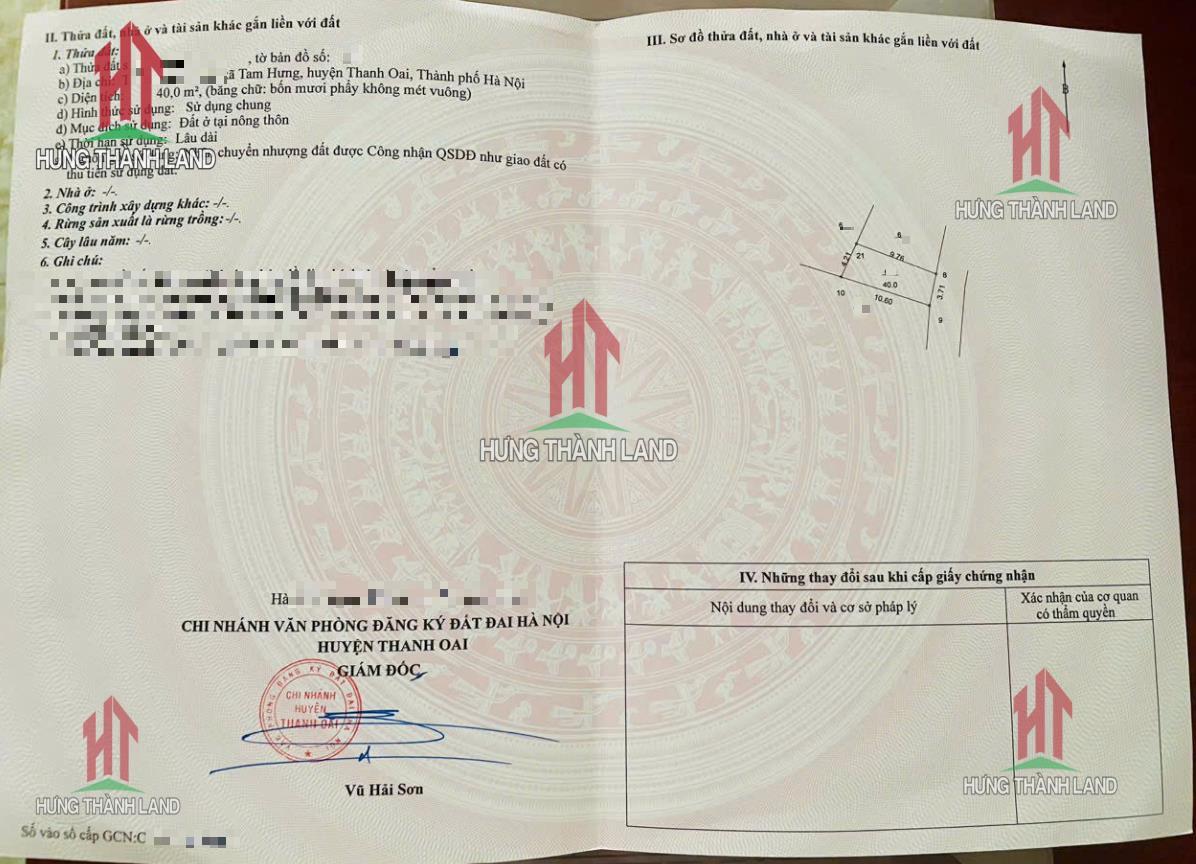 II. Thửa đất, nhà ở và tài sản khác gắn liền với đất
1. Thửa đất:
a) Thửa đất , tờ bản đồ số:
b) Địa chỉ: xã Tam Hưng, huyện Thanh Oai, Thành phố Hà Nội
c) Diện tích: 40,0 m², (bằng chữ: bốn mươi phẩy không mét vuông)
d) Hình thức sử dụng: Sử dụng chung
đ) Mục đích sử dụng: Đất ở tại nông thôn
e) Thời hạn sử dụng: Lâu dài
chuyển nhượng đất được Công nhận QSDĐ như giao đất có
thu tiền sử dụng đất.
2. Nhà ở: -/-.
3. Công trình xây dựng khác: -/-.
4. Rừng sản xuất là rừng trồng: -/-.
5. Cây lâu năm: -/-.
6. Ghi chú:
Hà
CHI NHÁNH VĂN PHÒNG ĐĂNG KÝ ĐẤT ĐAI HÀ NỘI
HUYỆN THANH OAI
GIÁM ĐỐC
VĂN PHÒNG ĐĂNG KÝ ĐẤT ĐAI HÀ NỘI
CHI NHÁNH
HUYỆN
THANH OAI
Vũ Hải Sơn
Số vào sổ cấp GCN:C
III. Sơ đồ thửa đất, nhà ở và tài sản khác gắn liền với đất
B
6
4.21
21
9.76
8
40.0
3.71
10
10.60
9
IV. Những thay đổi sau khi cấp giấy chứng nhận
Nội dung thay đổi và cơ sở pháp lý
Xác nhận của cơ quan
có thẩm quyền
HƯNG THÀNH LAND
HƯNG THÀNH LAND
HƯNG THÀNH LAND
HƯNG THÀNH LAND
HƯNG THÀNH LAND